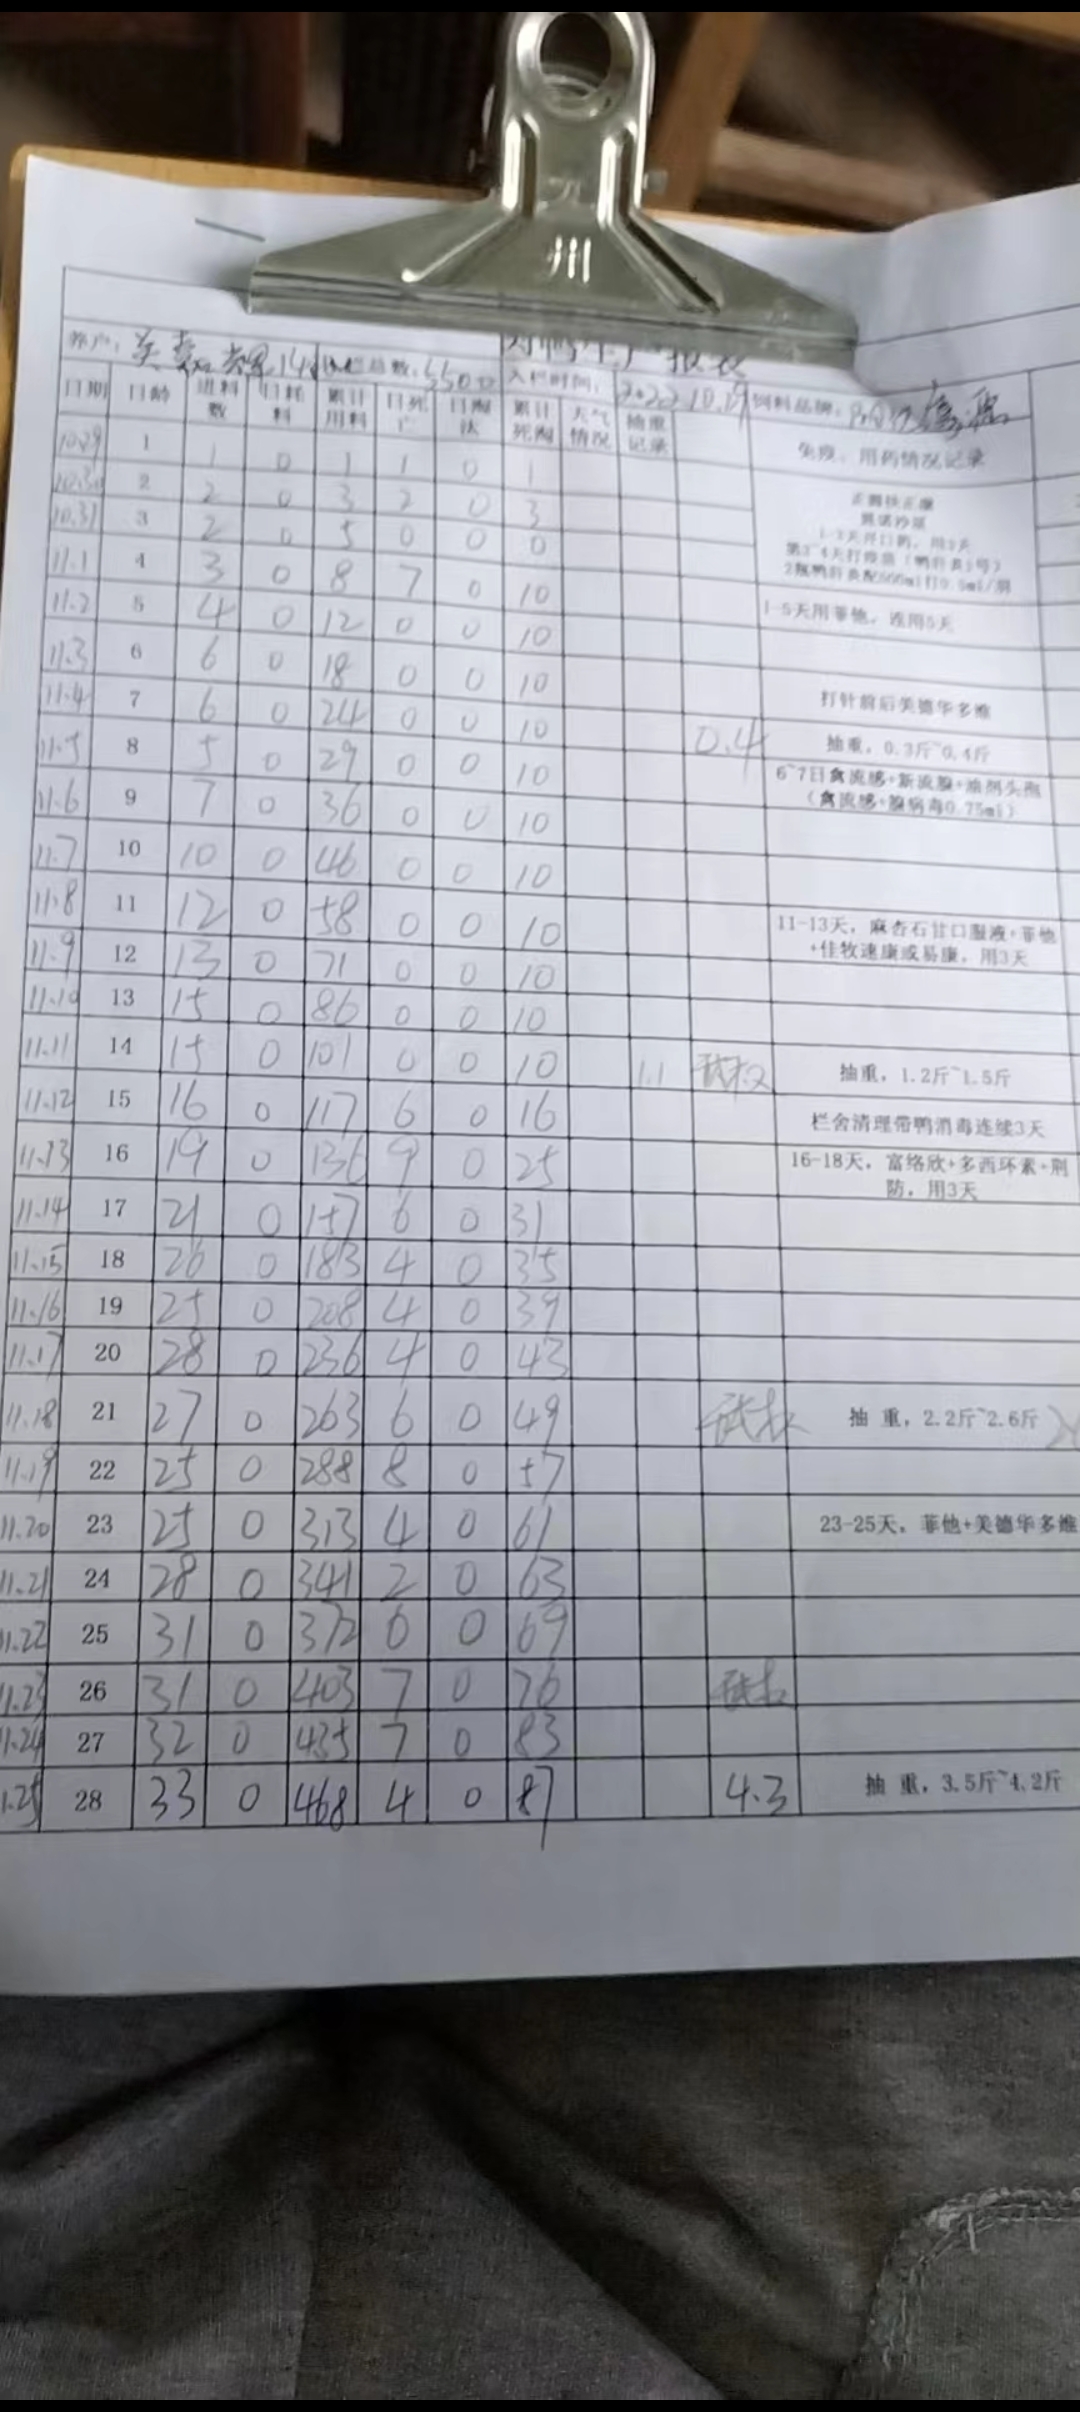 州
养户：
入栏时间：2022.10.29 饲料品牌：
日期 日龄 进料数 日耗料 累计用料 日死亡 日淘汰 累计死淘 天气情况 抽重记录 免疫、用药情况记录
10.29 1 1 0 1 1 0 1
10.30 2 2 0 3 2 0 3
10.31 3 2 0 5 0 0 0
11.1 4 3 0 8 7 0 10
11.2 5 4 0 12 0 0 10 1-5天用菲他，连用5天
11.3 6 6 0 18 0 0 10
11.4 7 6 0 24 0 0 10 打针前后美德华多维
11.5 8 5 0 29 0 0 10 0.4 抽重，0.3斤~0.4斤
11.6 9 7 0 36 0 0 10 6~7日禽流感+新流腺+油剂头孢
（禽流感+腺病毒0.75ml）
11.7 10 10 0 46 0 0 10
11.8 11 12 0 58 0 0 10 11-13天，麻杏石甘口服液+菲他
+佳牧速康或易康，用3天
11.9 12 13 0 71 0 0 10
11.10 13 15 0 86 0 0 10
11.11 14 15 0 101 0 0 10 1.1 抽重，1.2斤~1.5斤
11.12 15 16 0 117 6 0 16 栏舍清理带鸭消毒连续3天
11.13 16 19 0 136 9 0 25 16-18天，富络欣+多西环素+荆
防，用3天
11.14 17 21 0 157 6 0 31
11.15 18 26 0 183 4 0 35
11.16 19 25 0 208 4 0 39
11.17 20 28 0 236 4 0 43
11.18 21 27 0 263 6 0 49 抽 重，2.2斤~2.6斤
11.19 22 25 0 288 8 0 57
11.20 23 25 0 313 4 0 61 23-25天，菲他+美德华多维
11.21 24 28 0 341 2 0 63
11.22 25 31 0 372 6 0 69
11.23 26 31 0 403 7 0 76
11.24 27 32 0 435 7 0 83
1.25 28 33 0 468 4 0 87 4.3 抽 重，3.5斤~4.2斤